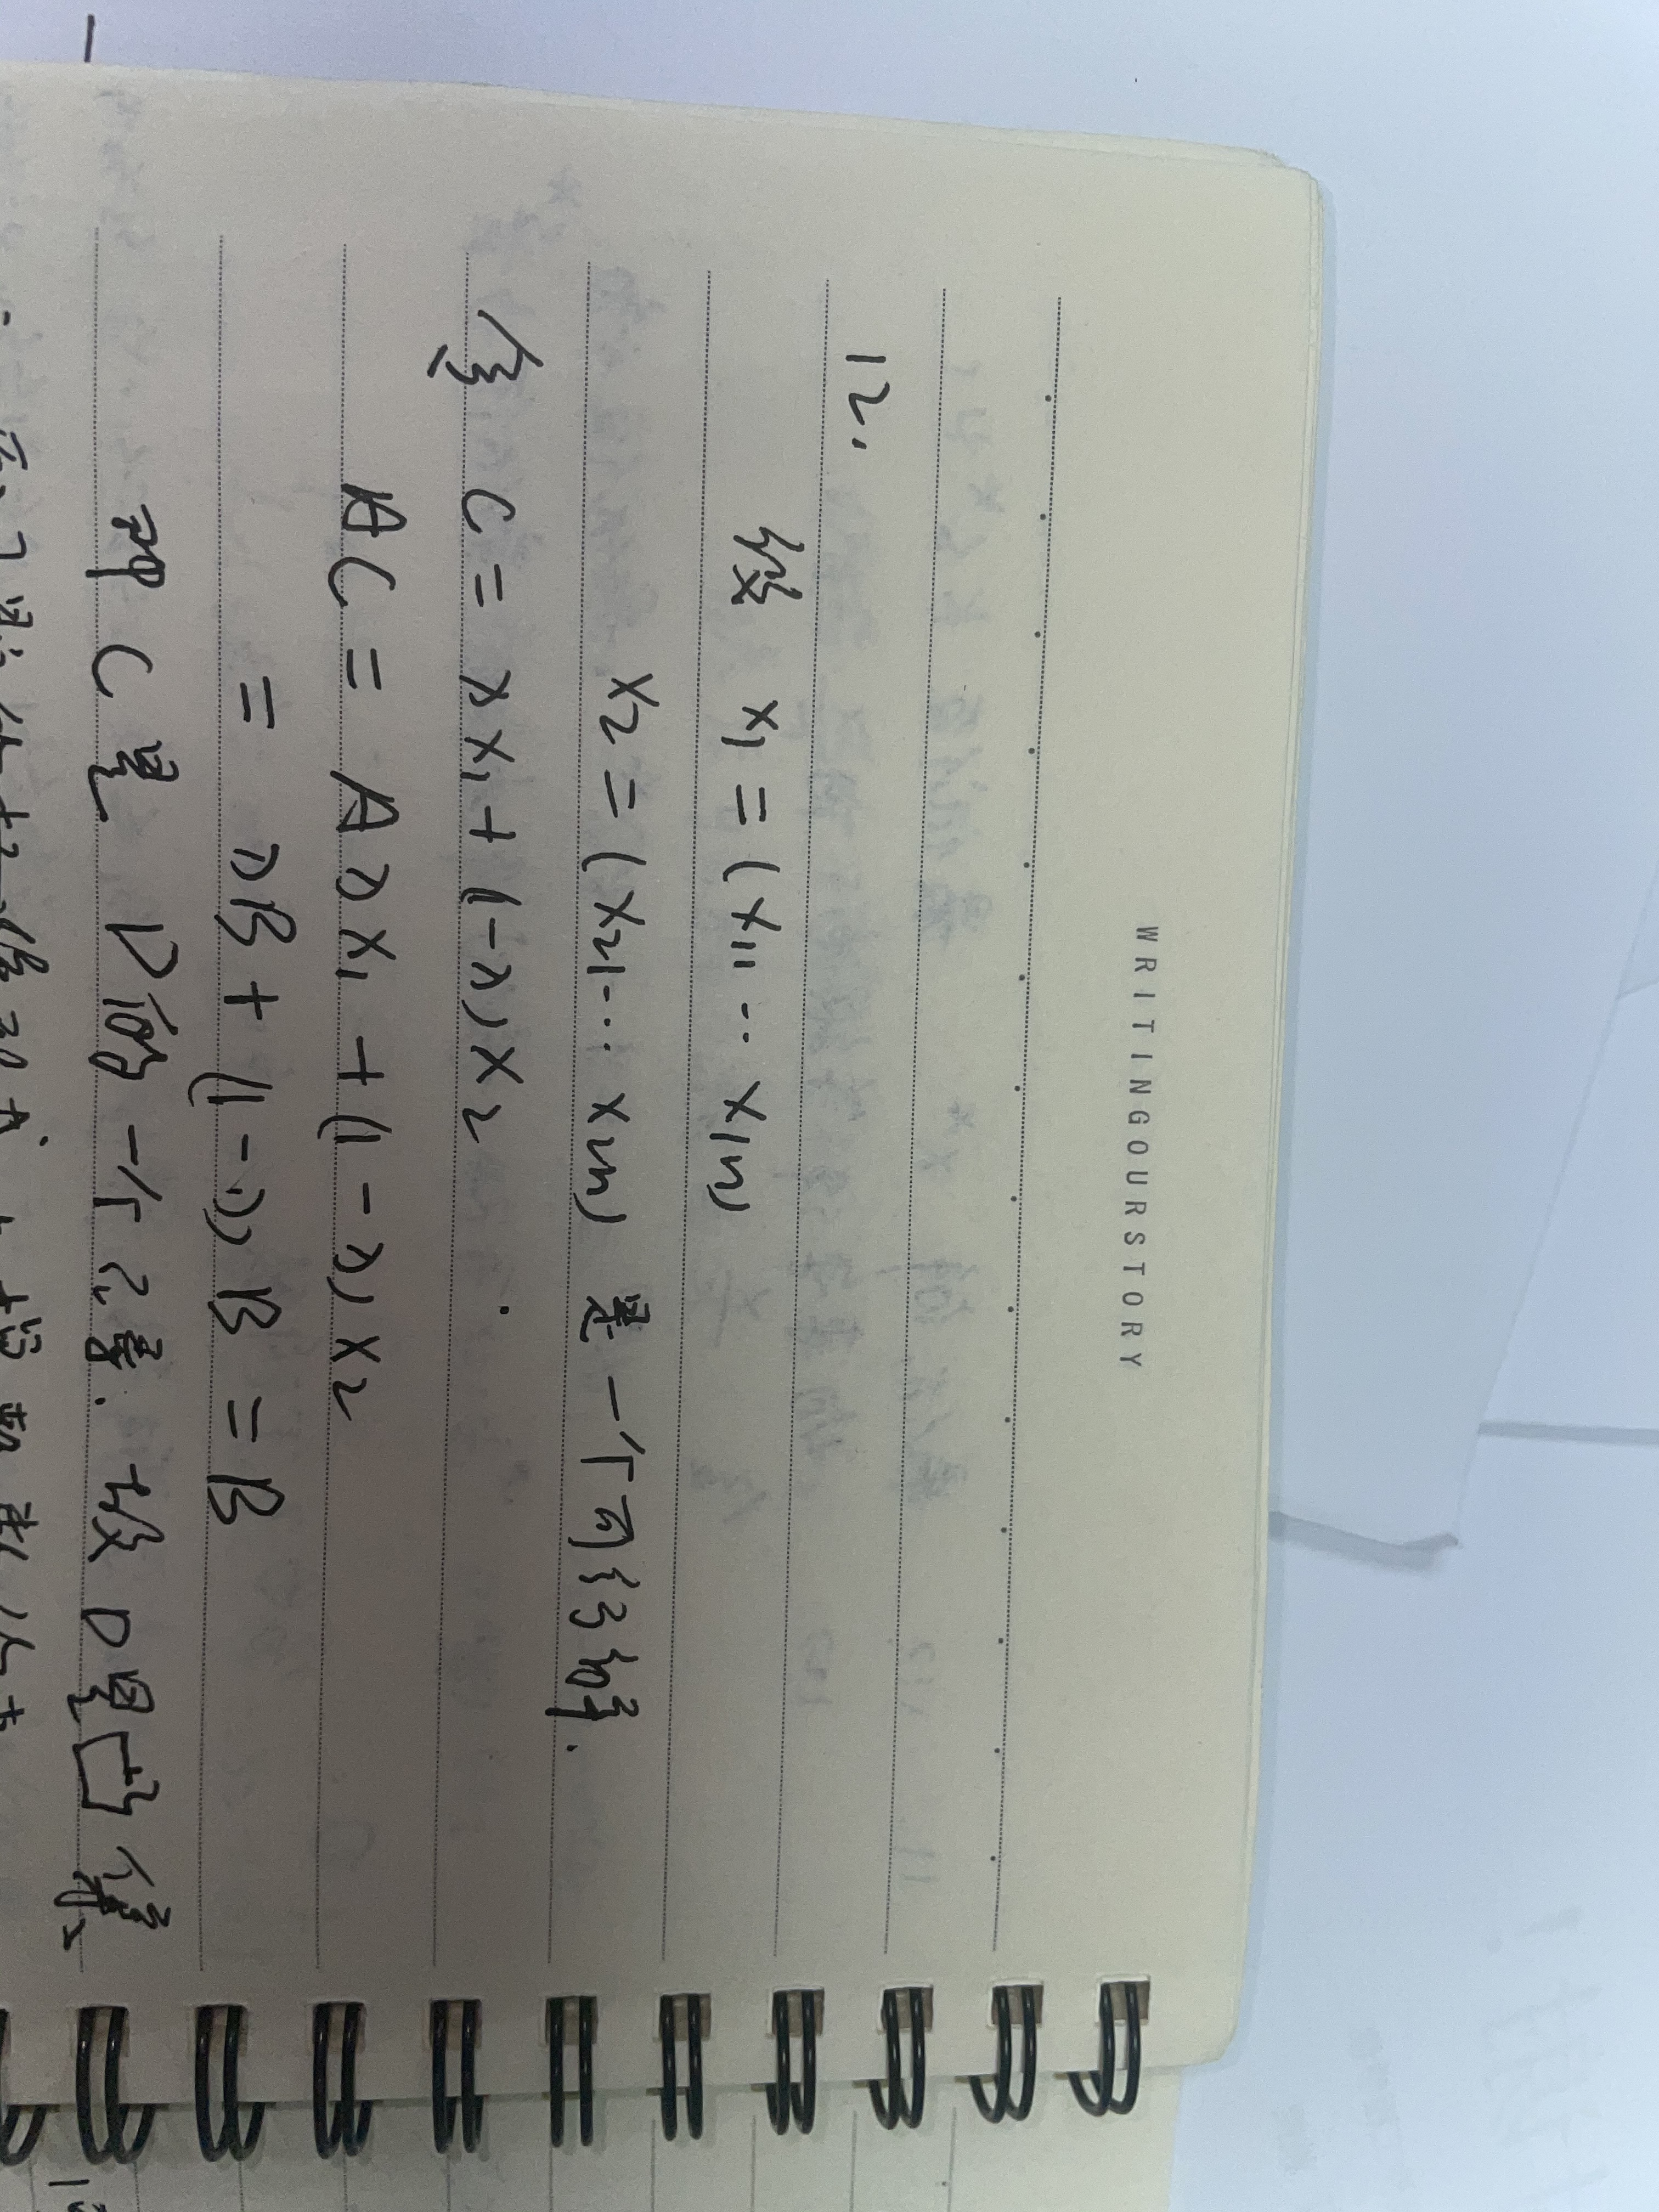 WRITINGOURSTORY
12.
设 x₁ = (x₁₁ ... x₁n)
x₂ = (x₂₁ ... x₂n) 是一个可行解.
令 C = λx₁ + (1-λ)x₂.
AC = Aλx₁ + (1-λ)x₂
= λB + (1-λ)B = B
即 C 是 D的一个元素. 故 D是凸集